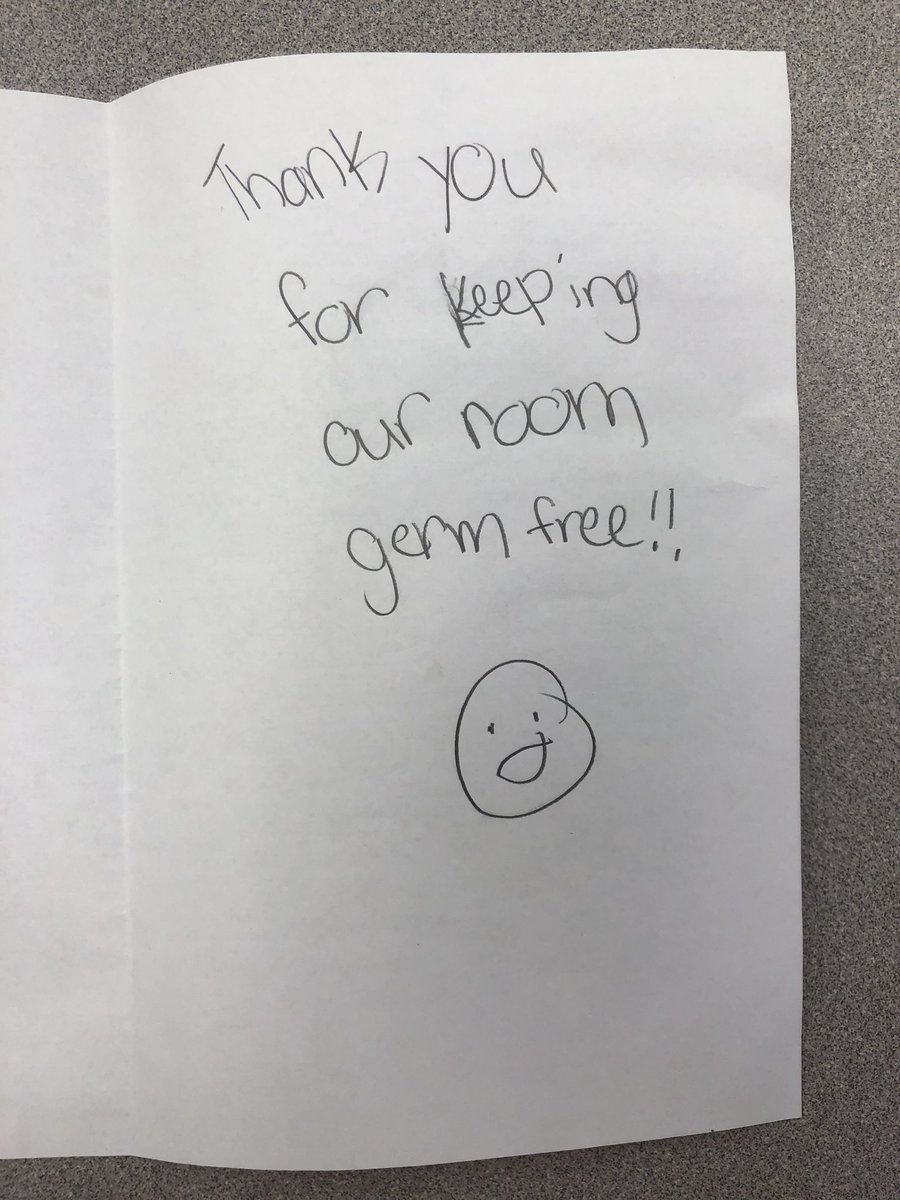 Thank you
for keeping
our room
germ free!!